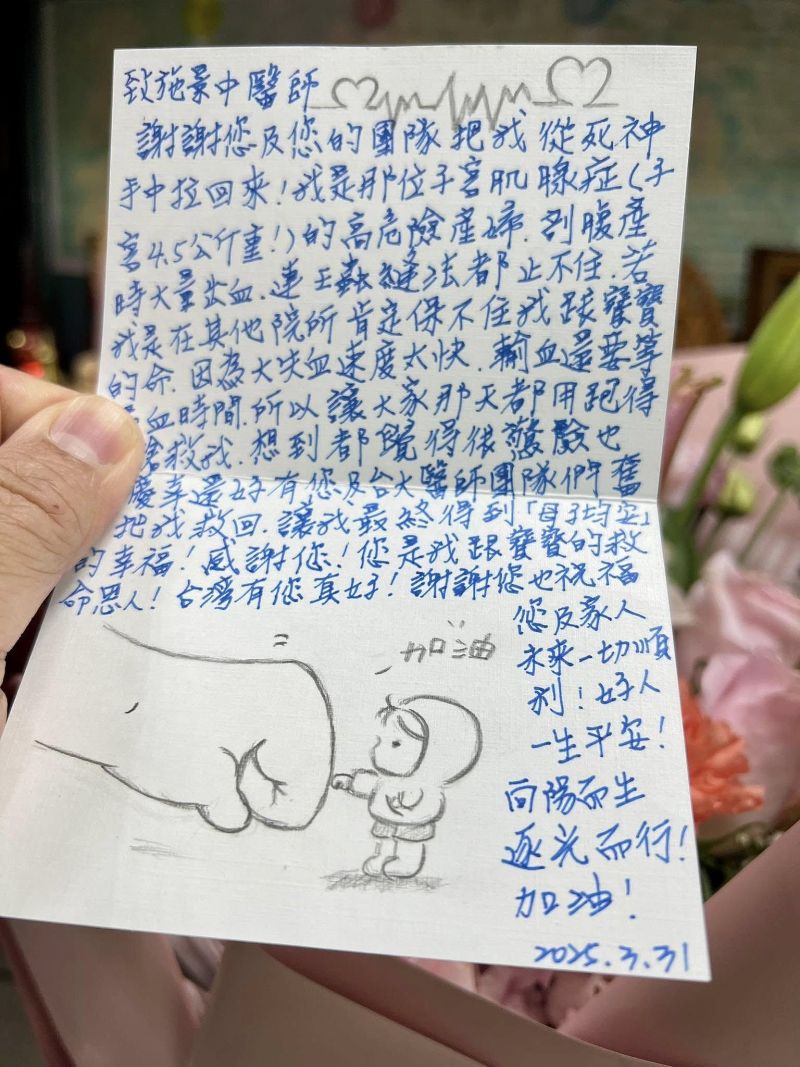 致施景中醫師
謝謝您及您的團隊把我從死神
手中拉回來!我是那位子宮肌腺症(子
宮4.5公斤重!)的高危險產婦.剖腹產
時大量出血.連王蟲縫法都止不住.若
我是在其他院所肯定保不住我跟寶寶
的命.因為大失血速度太快.輸血還要等
血時間.所以讓大家那天都用跑得
救我.想到都覺得很驚險也
慶幸還好有您及台大醫師團隊們奮
把我救回.讓我最終得到「母子均安」
的幸福!感謝您!您是我跟寶寶的救
命恩人!台灣有您真好!謝謝您也祝福
您及家人
未來一切順
利!好人
一生平安!
向陽而生
逐光而行!
加油!
2025.3.31
加油